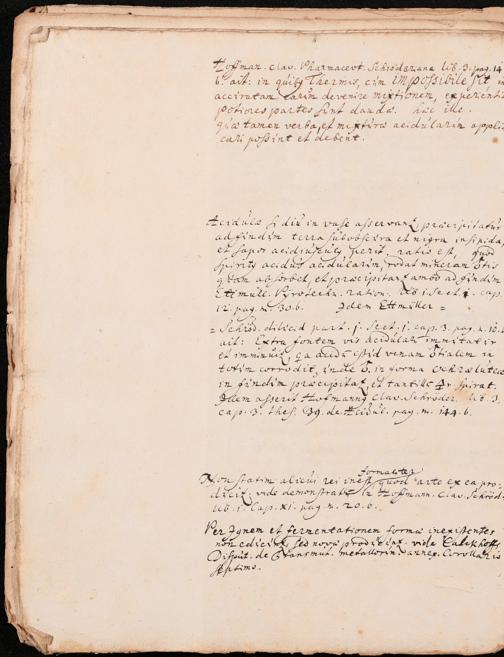 Hoffman. clav. Pharmaceut. Schröderiana lib. 3. pag. 14
6. ait: in quibus Thermis, cum impossibile sit in
accuratam earum devenire mixtionem, experienti
potiores partes sunt dandæ. hæc ille.
quæ tamen verba, et mixturæ acidularum appli
cari possint et debent.
Acidulæ si diu in vase asservant, præcipitatur
ad fundum terra subobscura et nigra insipida,
et sapor acidiusculus perit, ratio est, quod
spiritus acidus acidularum, rodat mineram
absorbet, et præcipitat ad fundum
Ettmüll. Pyrotechn. ration. lib. 1. Sect. 1. cap.
12. pag. m. 306. Idem Ettmüller =
= Schröd. dilucid part. 1. Sect. 1. cap. 3. pag. m. 10.
ait: Extra fontem vis acidula immitatur
et imminuit, qa acidu venam
corrodit, inde in forma ochræ luteæ
in fundum præcipitat, et spirat.
Idem asserit Hofmanny Clav. Schröder. lib. 3.
cap. 3. thes. 39. de Acidul. pag. m. 144. 6.
formaliter
Non statim alicui rei inest, quod arte ex ea pro
ducit, vide demonstrat in Hoffmann. Clav. Schröd
lib. 1. Cap. XI. pag. m. 20. 6.
Per Ignem et fermentationem formæ inexistentes
non educunt, sed novæ producunt. vide
Disput. de Transmut. metallorum annex. Corollariis
septimo.